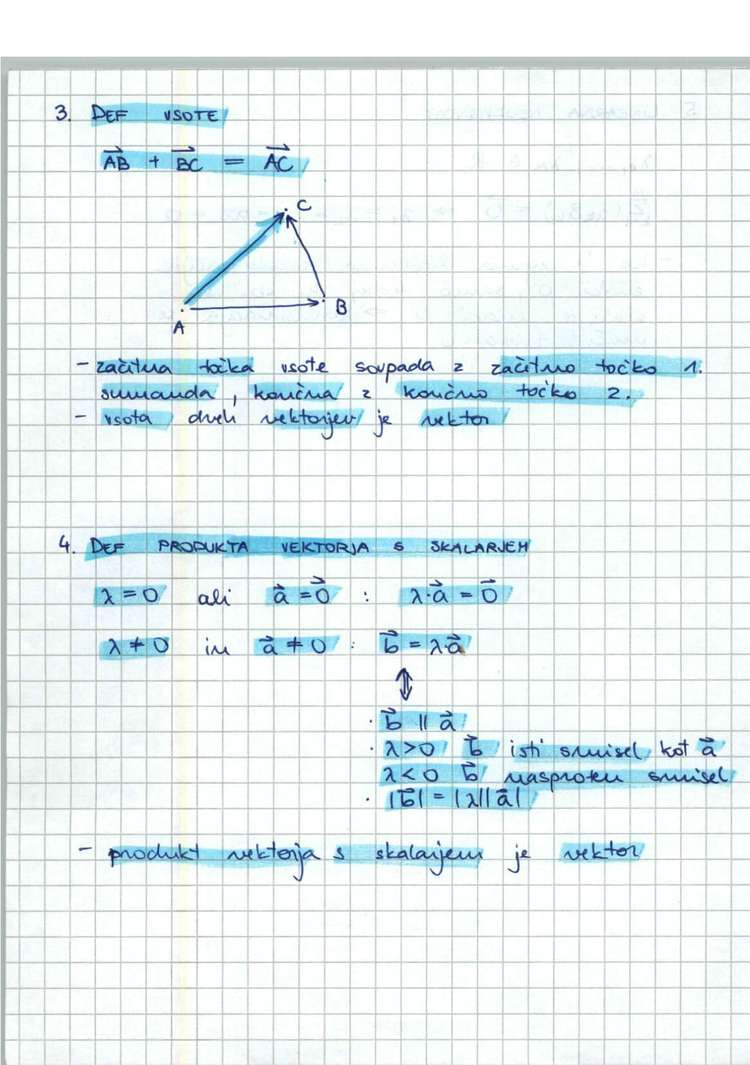 3. DEF VSOTE
A⃗B⃗ + B⃗C⃗ = A⃗C⃗
C
B
A
- začitna točka vsote sovpada z začitno točko 1.
sumanda, končna z končno točko 2.
- vsota dveh vektorjev je vektor
4. DEF PRODUKTA VEKTORJA S SKALARJEM
λ = 0 ali a⃗ = 0⃗ : λ·a⃗ = 0⃗
λ ≠ 0 in a⃗ ≠ 0 : b⃗ = λ·a⃗
⇕
· b⃗ || a⃗
· λ>0 b⃗ isti smisel kot a⃗
λ<0 b⃗ nasproten smisel
· |b⃗| = |λ||a⃗|
- produkt vektorja s skalarjem je vektor